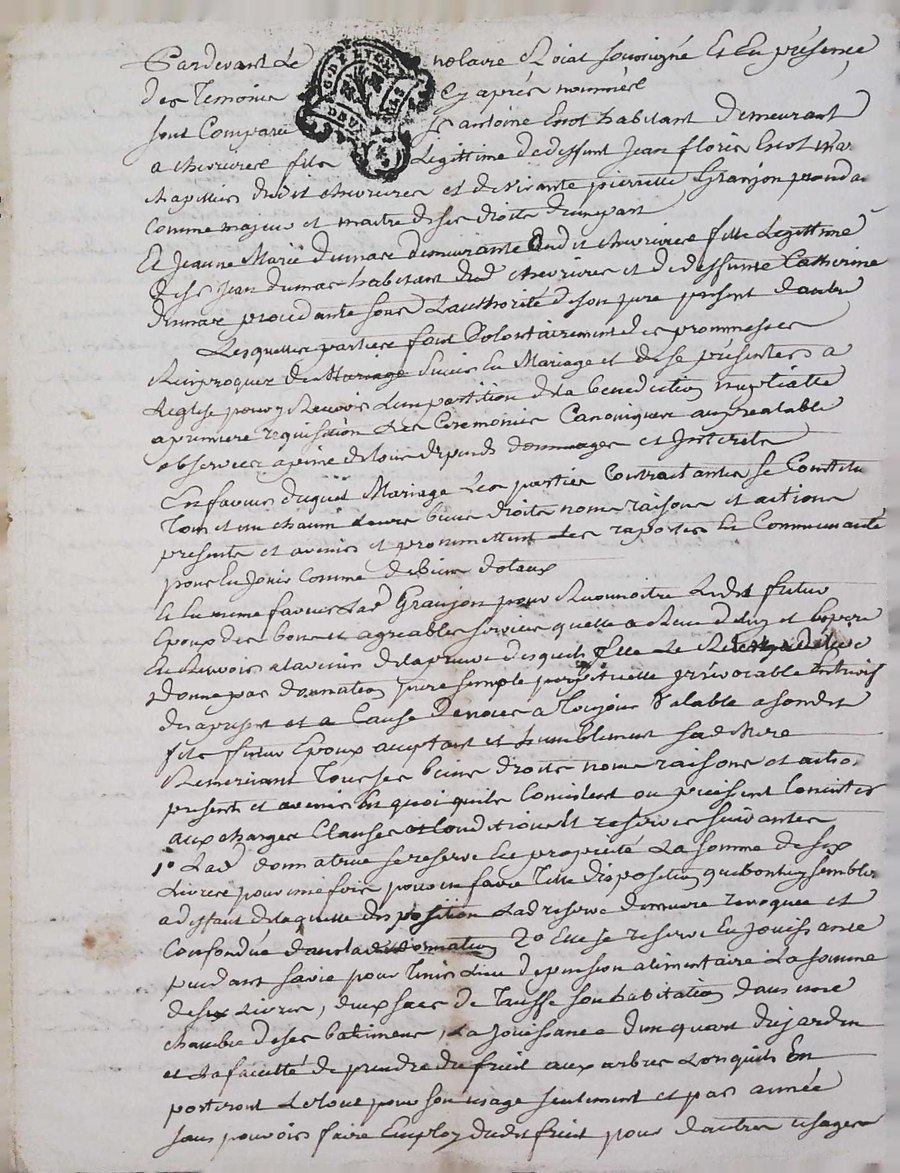 Pardevant Le notaire Roial soussigné et En présence
des Temoins Cy aprés nommés
sont Comparu Sr antoine habitant demeurant
a chevrieres fils Legittime de deffunt Jean
dudit chevrieres et de vivante pierrette Granjon
Comme majeur et maitre de ses droits d'une part
Et Jeanne Marie dumas demeurante audit chevrieres fille Legittime
de Sr Jean dumas habitant dud chevrieres et de deffunte Catherine
dumas procedante sous L'authorité de son pere present d'autre
Lesquelles parties font volontairement des prommesses
Reciproques de Mariage En Mariage et de se présenter a
L'eglise pour y Recevoir de la benediction nuptialle
a premiere requisition Les Ceremonies Canoniques au prealable
observées a peine de tous depends dommages et Interets
En faveur duquel Mariage Les parties Contractantes se Constitu
Tous et un chacun Leurs biens droits noms raisons et actions
presents et avenir et promettent Les raporter En Communauté
pour En Jouir Comme de biens dotaux
Et En meme faveur Lad Granjon pour Reconnoitre Ledit futur
Epoux des bons et agreables services quelle a Recu de luy et Espere
En Recevoir a lavenir de la preuve desquels Elle Le
donne par donnation pure simple perpetuelle irrévocable Entrevifs
des apresent et a Cause de noces a Toujour valable a sondit
fils futur Epoux acceptant et humblement sad Mere
Remerciant Tous ses biens droits noms raisons et actio.
presents et avenir En quoi quils Consistent ou puissent Consister
aux charges Clauses et Conditions et reserves suivantes
1° Lad donnatrice se reserve En propriété La somme de six
Livres pour une fois pour En faire Telle disposition que bon luy semblera
a deffaut de laquelle disposition Lad reserve demeure revoquée et
Confondue dans La donnation 2° Elle se reserve En Jouissance
pendant sa vie pour Tenir Lieu de pension alimentaire La somme
de six Livres, deux sacs de son habitation dans une
chambre de ses batimens, La Jouissance d'un quart du jardin
et La faculté de prendre du fruit aux arbres Lorsquils En
porteront Le Tout pour son usage seulement et par année
sans pouvoir faire Employ dudit fruit pour d'autres usages